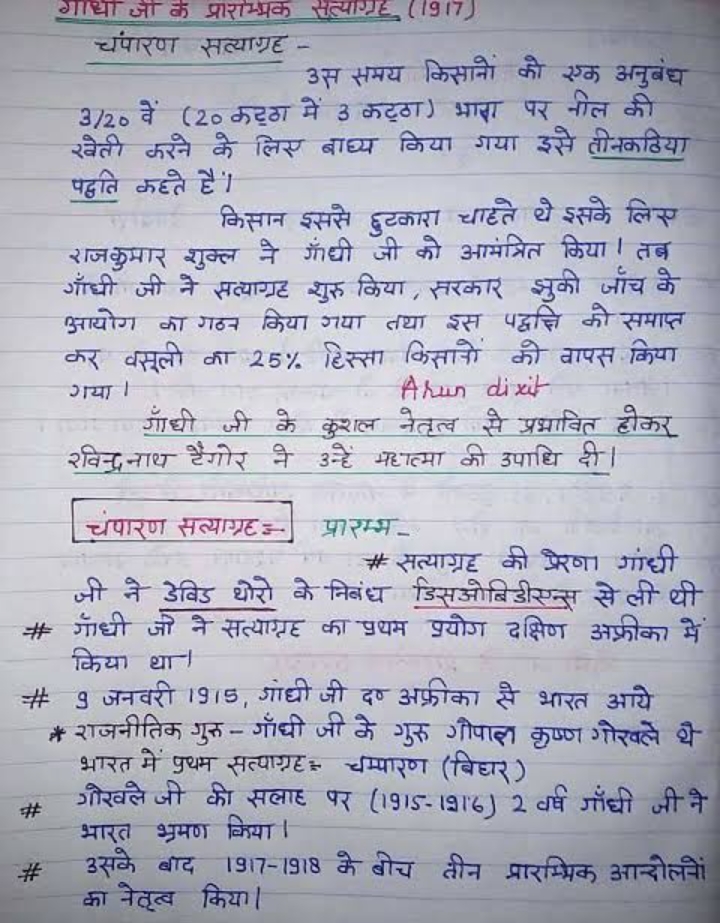 गाँधी जी के प्रारम्भिक सत्याग्रह (1917)
चंपारण सत्याग्रह -
उस समय किसानों को एक अनुबंध
3/20 वें (20 कट्ठा में 3 कट्ठा) भाग पर नील की
खेती करने के लिए बाध्य किया गया इसे तीनकठिया
पद्धति कहते है।
किसान इससे छुटकारा चाहते थे इसके लिए
राजकुमार शुक्ल ने गाँधी जी को आमंत्रित किया। तब
गाँधी जी ने सत्याग्रह शुरू किया, सरकार झुकी जाँच के
आयोग का गठन किया गया तथा इस पद्धत्ति को समाप्त
कर वसूली का 25% हिस्सा किसानों को वापस किया
गया। Ahun dixit
गाँधी जी के कुशल नेतृत्व से प्रभावित होकर
रविन्द्रनाथ टैगोर ने उन्हें महात्मा की उपाधि दी।
चंपारण सत्याग्रह :- प्रारम्भ -
# सत्याग्रह की प्रेरणा गांधी
जी ने डेविड थोरो के निबंध डिसओबिडीएन्स से ली थी
# गाँधी जी ने सत्याग्रह का प्रथम प्रयोग दक्षिण अफ्रीका में
किया था।
# 9 जनवरी 1915, गांधी जी द० अफ्रीका से भारत आये
* राजनीतिक गुरु - गाँधी जी के गुरु गोपाल कृष्ण गोखले थे
भारत में प्रथम सत्याग्रह :- चम्पारण (बिहार)
# गोखले जी की सलाह पर (1915-1916) 2 वर्ष गाँधी जी ने
भारत भ्रमण किया।
# उसके बाद 1917-1918 के बीच तीन प्रारम्भिक आन्दोलनों
का नेतृत्व किया।